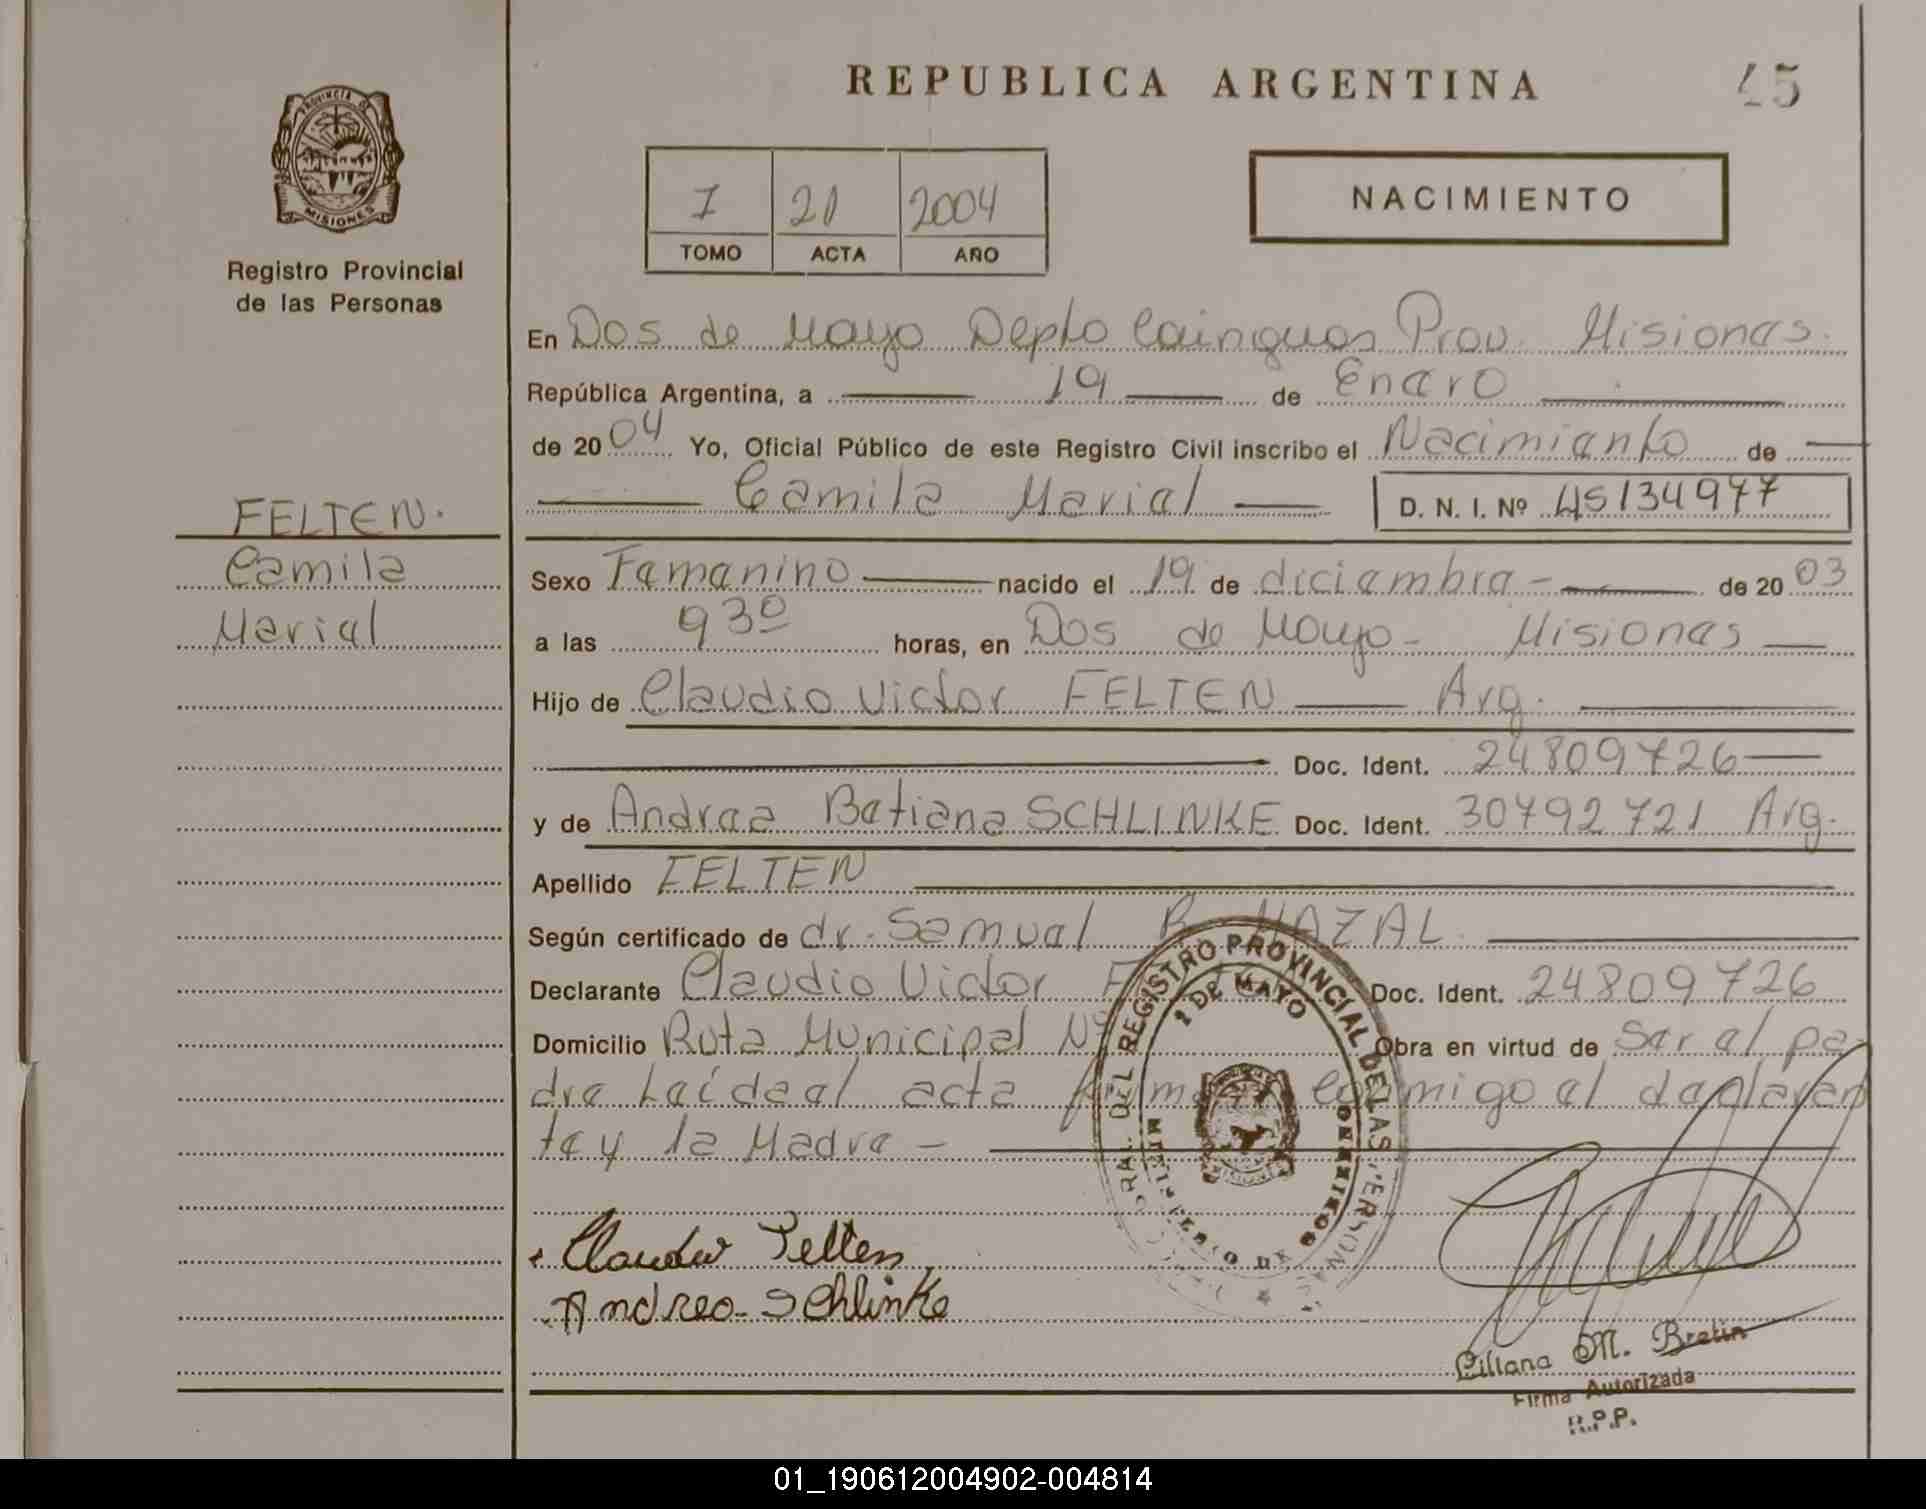 REPUBLICA ARGENTINA
45
PROVINCIA DE
MISIONES
Registro Provincial
de las Personas
I 20 2004
TOMO ACTA AÑO
NACIMIENTO
En Dos de Mayo Depto Cainguas Prov. Misiones.
República Argentina, a 19 de Enero
de 2004 Yo, Oficial Público de este Registro Civil inscribo el Nacimiento de
Camila Mariel D. N. I. Nº 45134977
FELTEN.
Camila
Mariel
Sexo Femenino nacido el 19 de diciembre - de 2003
a las 9 30 horas, en Dos de Mayo - Misiones
Hijo de Claudio Victor FELTEN Arg.
Doc. Ident. 24809726
y de Andrea Betiana SCHLINKE Doc. Ident. 30792721 Arg.
Apellido FELTEN
Según certificado de dr. Samuel R. NAZAL
Declarante Claudio Victor Doc. Ident. 24809726
Domicilio Ruta Municipal Nº Obra en virtud de Ser el pa
dre Leída el acta conmigo el declaran
te y la Madre -
REGISTRO PROVINCIAL DE LAS PERSONAS
2 DE MAYO
MISIONES
Claudio Felten
Andrea Schlinke
Liliana M. Bretin
Firma Autorizada
R.P.P.
01_190612004902-004814